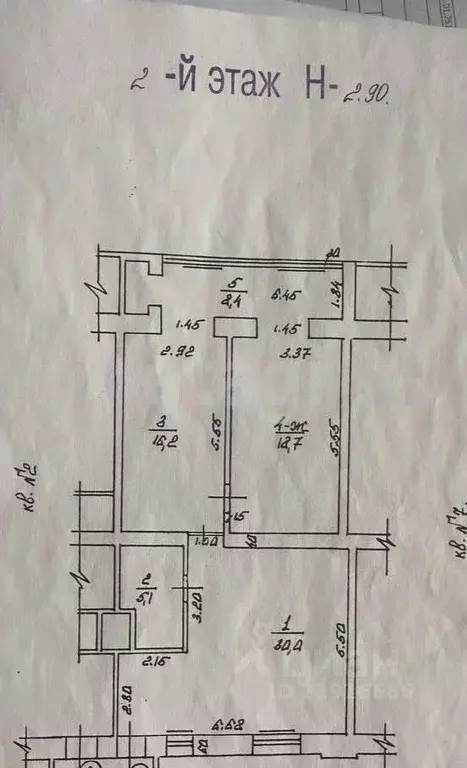 2 -й этаж H- 2.90.
5
8,4
6.45
1.84
1.45
1.45
2.92
3.37
3
16,2
5.55
4-ж
18,7
5.55
кв. №2
кв. №7
1.00
2
5,1
3.20
1
30,0
5.50
2.15
2.80
6.68
циан